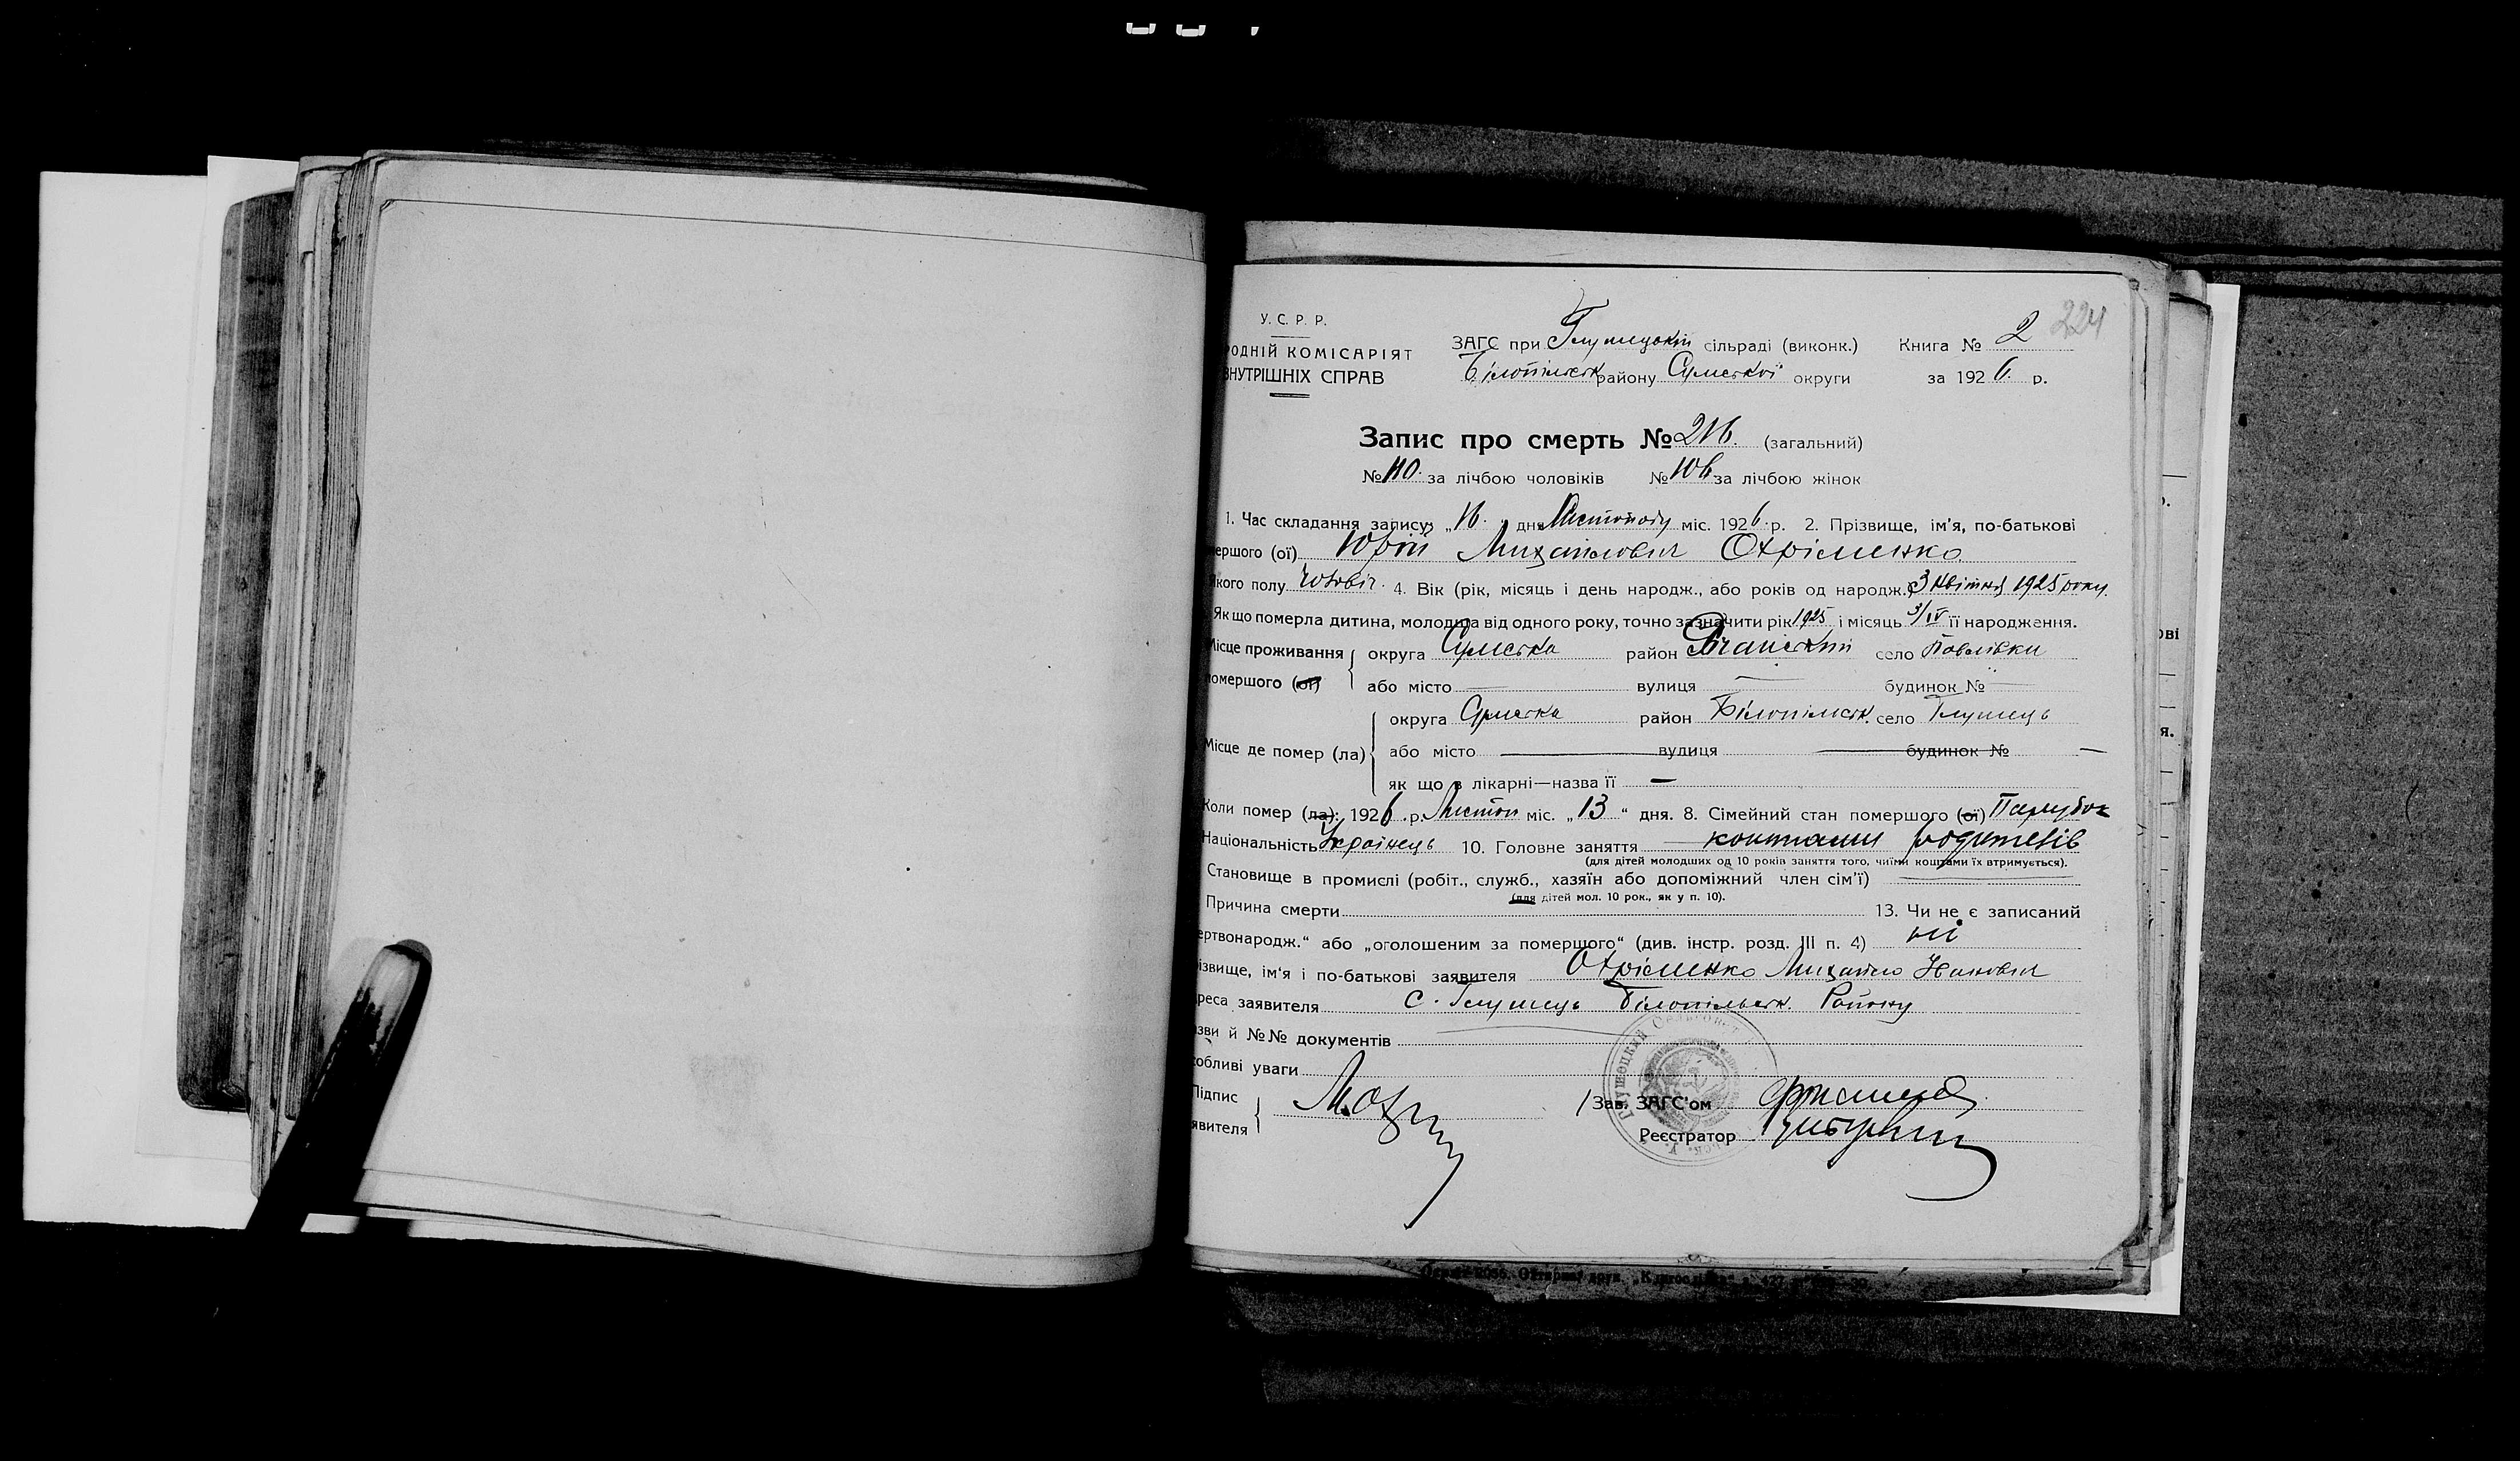 224
У. С. Р. Р.
РОДНІЙ КОМІСАРІЯТ
ВНУТРІШНІХ СПРАВ
ЗАГС при Глушецькій сільраді (виконк.) Книга № 2
Білопільськ району Сумської округи за 1926 р.
Запис про смерть № 216. (загальний)
№ 110. за лічбою чоловіків № 106 за лічбою жінок
1. Час складання запису: „16. дня Листопаду міс. 1926. р. 2. Прізвище, ім'я, по-батькові
мершого (ої) Юрій Михайлович Охріменко
Якого полу чоловіч. 4. Вік (рік, місяць і день народж., або років од народж.) 3 Квітня 1925 року.
Як що померла дитина, молодша від одного року, точно зазначити рік 1925 і місяць 3/IV її народження.
Місце проживання округа Сумська район село Павлівки
помершого (ої) або місто — вулиця — будинок № —
округа Сумська район Білопільськ. село Глушець
Місце де помер (ла) або місто — вулиця — будинок № —
як що в лікарні—назва її —
Коли помер (ла): 1926. р. Листоп міс. „13“ дня. 8. Сімейний стан помершого (ої) Парубок
Національність Українець 10. Головне заняття коштами родителів
(для дітей молодших од 10 років заняття того, чиїми коштами їх втримується).
Становище в промислі (робіт., служб., хазяїн або допоміжний член сім'ї) —
(для дітей мол. 10 рок., як у п. 10).
Причина смерти 13. Чи не є записаний
ертвонародж.“ або „оголошеним за померщого“ (див. інстр. розд. III п. 4) ні
ізвище, ім'я і по-батькові заявителя Охріменко Михайло Іванович
реса заявителя с. Глушець Білопільськ. Району
зви й №№ документів
обливі уваги
Підпис
явителя
Зав. ЗАГС'ом
Реєстратор